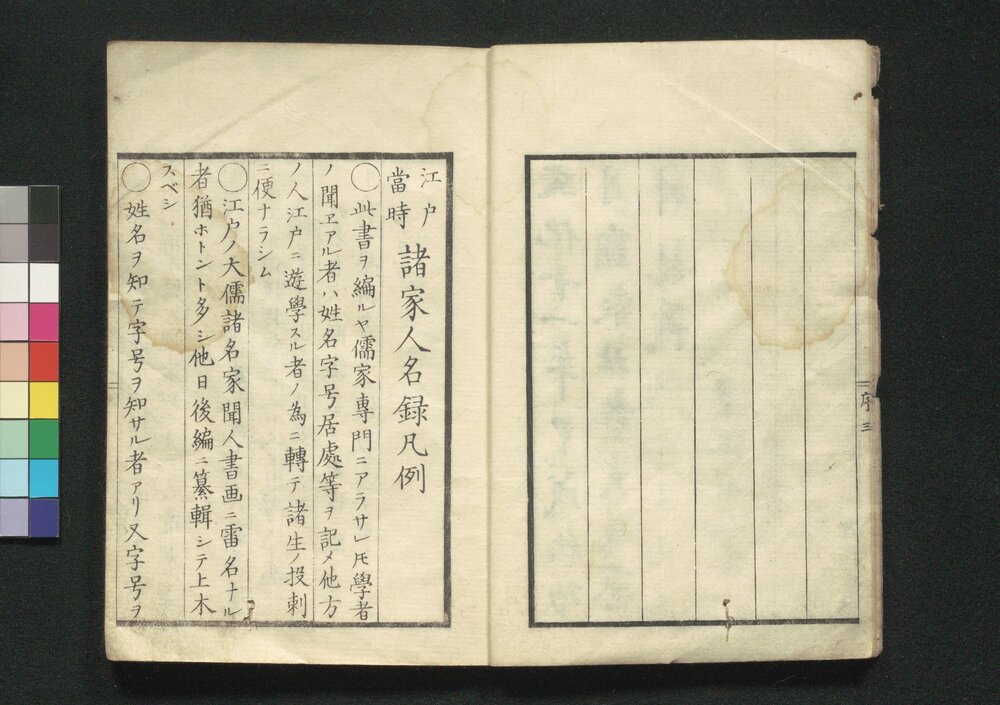 序三
江戸當時諸家人名録凡例
◯此書ヲ編ルヤ儒家専門ニアラサレ𪜈學者
ノ聞ヱアル者ハ姓名字号居處等ヲ記メ他方
ノ人江戸ニ遊學スル者ノ為ニ轉テ諸生ノ投刺
ニ便ナラシム
◯江戸ノ大儒諸名家聞人書画ニ雷名ナル
者猶ホトント多シ他日後編ニ纂輯シテ上木
スベシ
◯姓名ヲ知テ字号ヲ知サル者アリ又字号ヲ